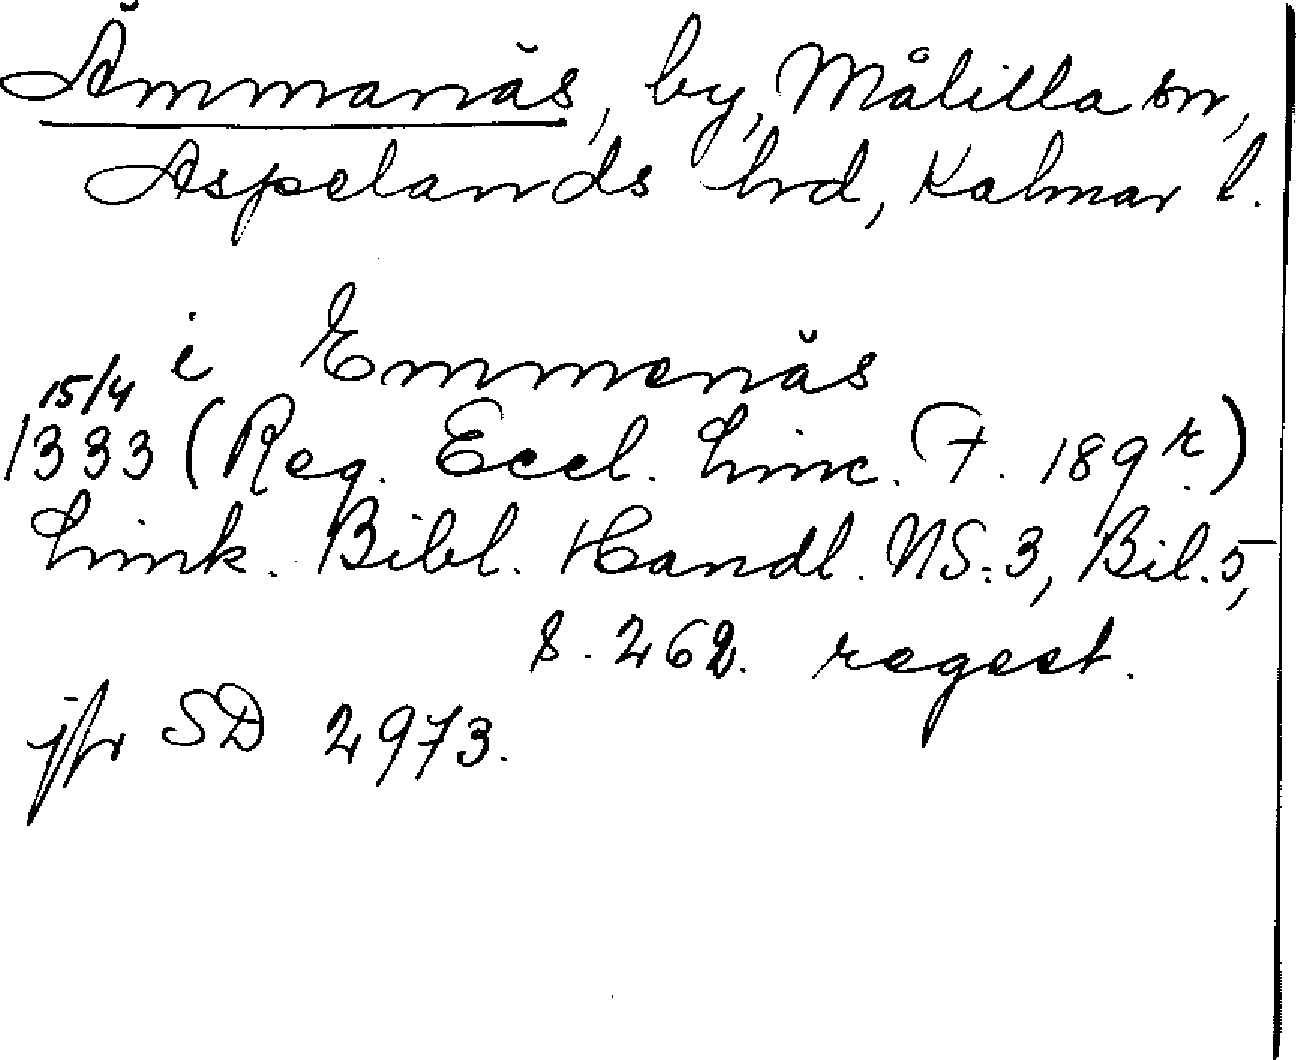 Ämmanäs, by, Målilla sn,
Aspelands hrd, Kalmar l.
i Emmenäs
15/4
1333 (Reg. Eccl. Linc. F. 189 r.)
Link. Bibl. Handl. NS:3, Bil. 5,
s. 262. regest.
jfr SD 2973.